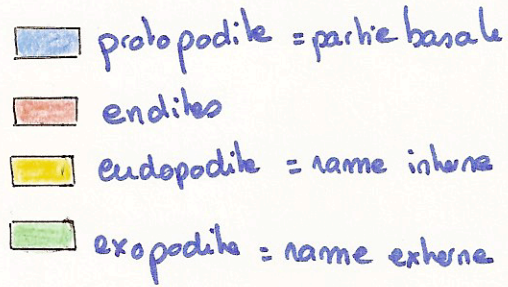 protopodite = partie basale
endites
endopodite = rame interne
exopodite = rame externe